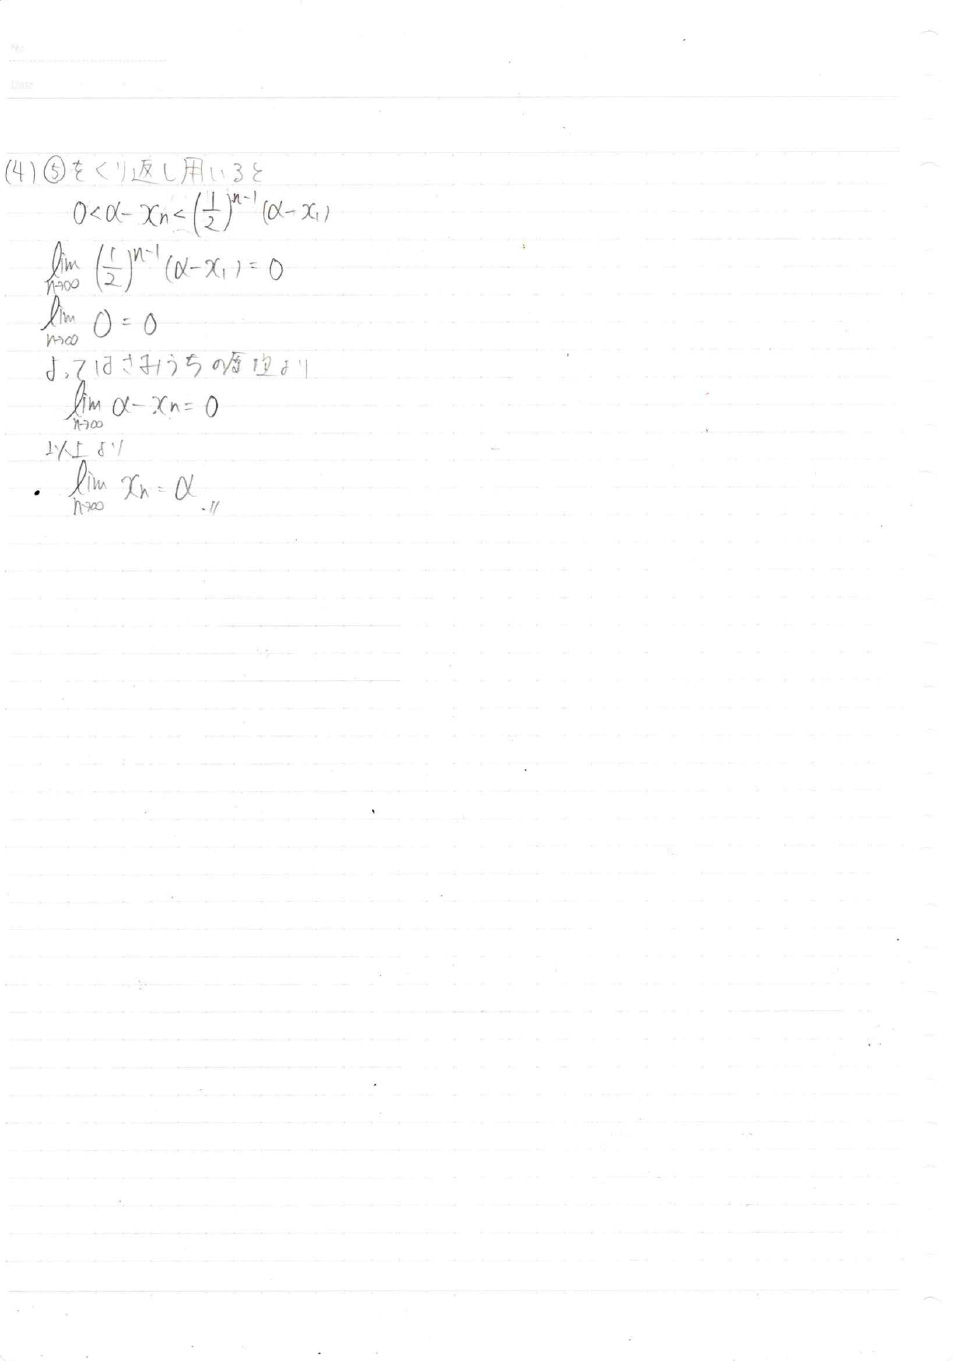 No.
Date
(4)⑤をくり返し用いると
0<α-xn<(1/2)^{n-1}(α-x₁)
lim_{n→∞} (1/2)^{n-1}(α-x₁)=0
lim_{n→∞} 0=0
よってはさみうちの原理より
lim_{n→∞} α-xn=0
以上より
・ lim_{n→∞} xn=α .〃